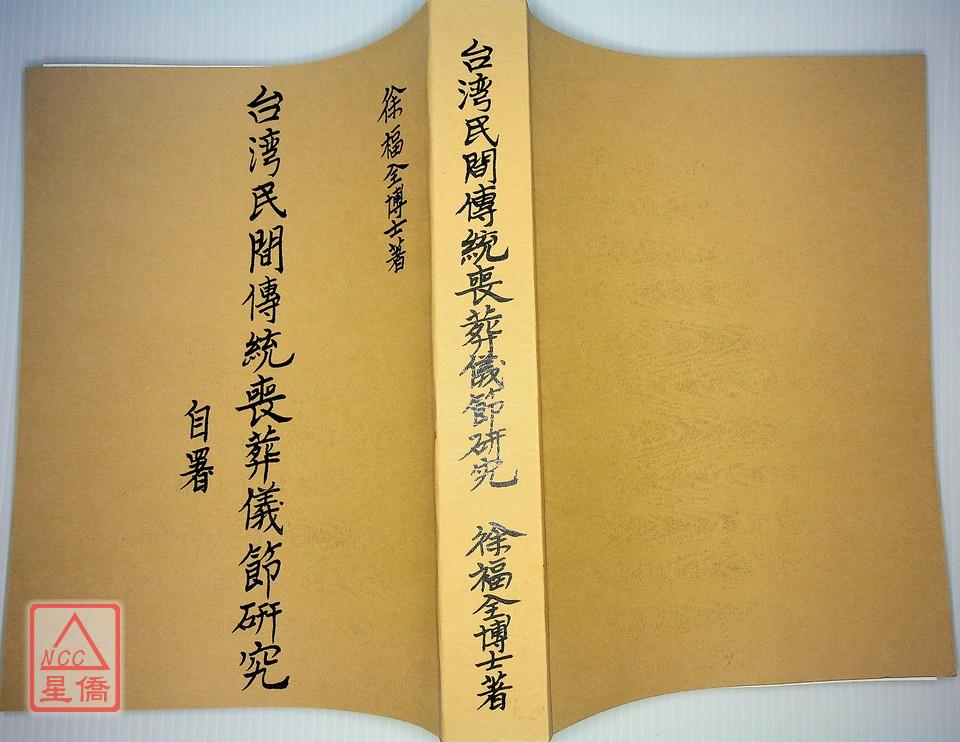 徐福全博士著
台湾民間傳統喪葬儀節研究
自署
台湾民間傳統喪葬儀節研究 徐福全博士著
NCC
星僑